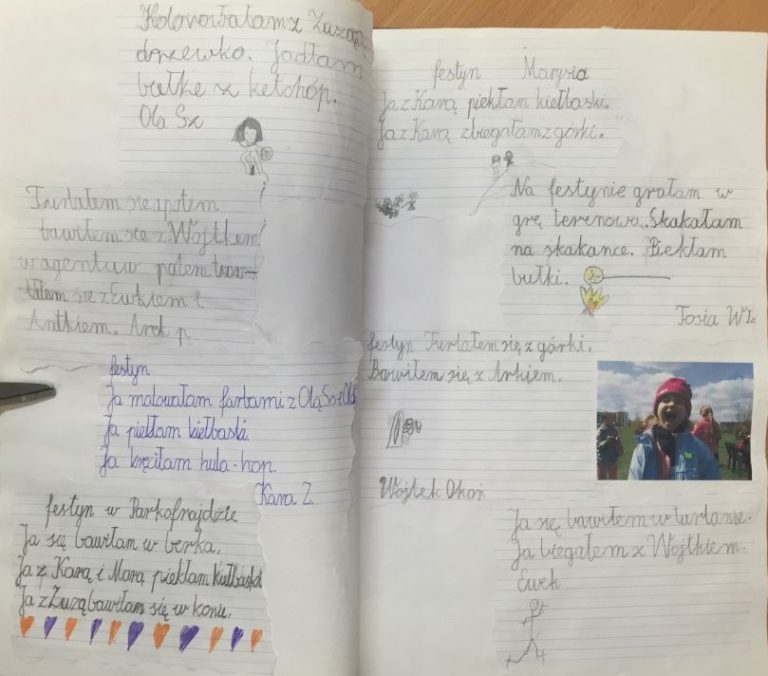 Kolorowałam z Zuzą
drzewko. Jadłam
bułkę z ketchóp.
Ola Sz
Turlałem sie apotem
bawiłem sie z Wojtkem
w agentaw potem turu-
tałem się z Ewkiem i
Antkiem. Arek p
festyn
Ja malowałam farbami z Olą Sz i Olą
Ja piekłam kiełbaski.
Ja kręciłam hula-hop.
Kara Z.
festyn w Parkofrajdzie
Ja się bawiłam w berka.
Ja z Karą i Marą piekłam kiełbaski
Ja z Zuzą bawiłam się w konu.
festyn Marysia
Ja z Karą piekłam kiełbaski.
Ja z Karą zbiegałam z górki.
Na festynie grałam w
grę terenowo. Skakałam
na skakance. Piekłam
bułki.
Tosia W
festyn Turlałem się z górki.
Bawiłem się z Arkiem.
Wojtek Okoń
Ja się bawiłem w turlanie.
Ja biegałem z Wojtkiem.
Ewek